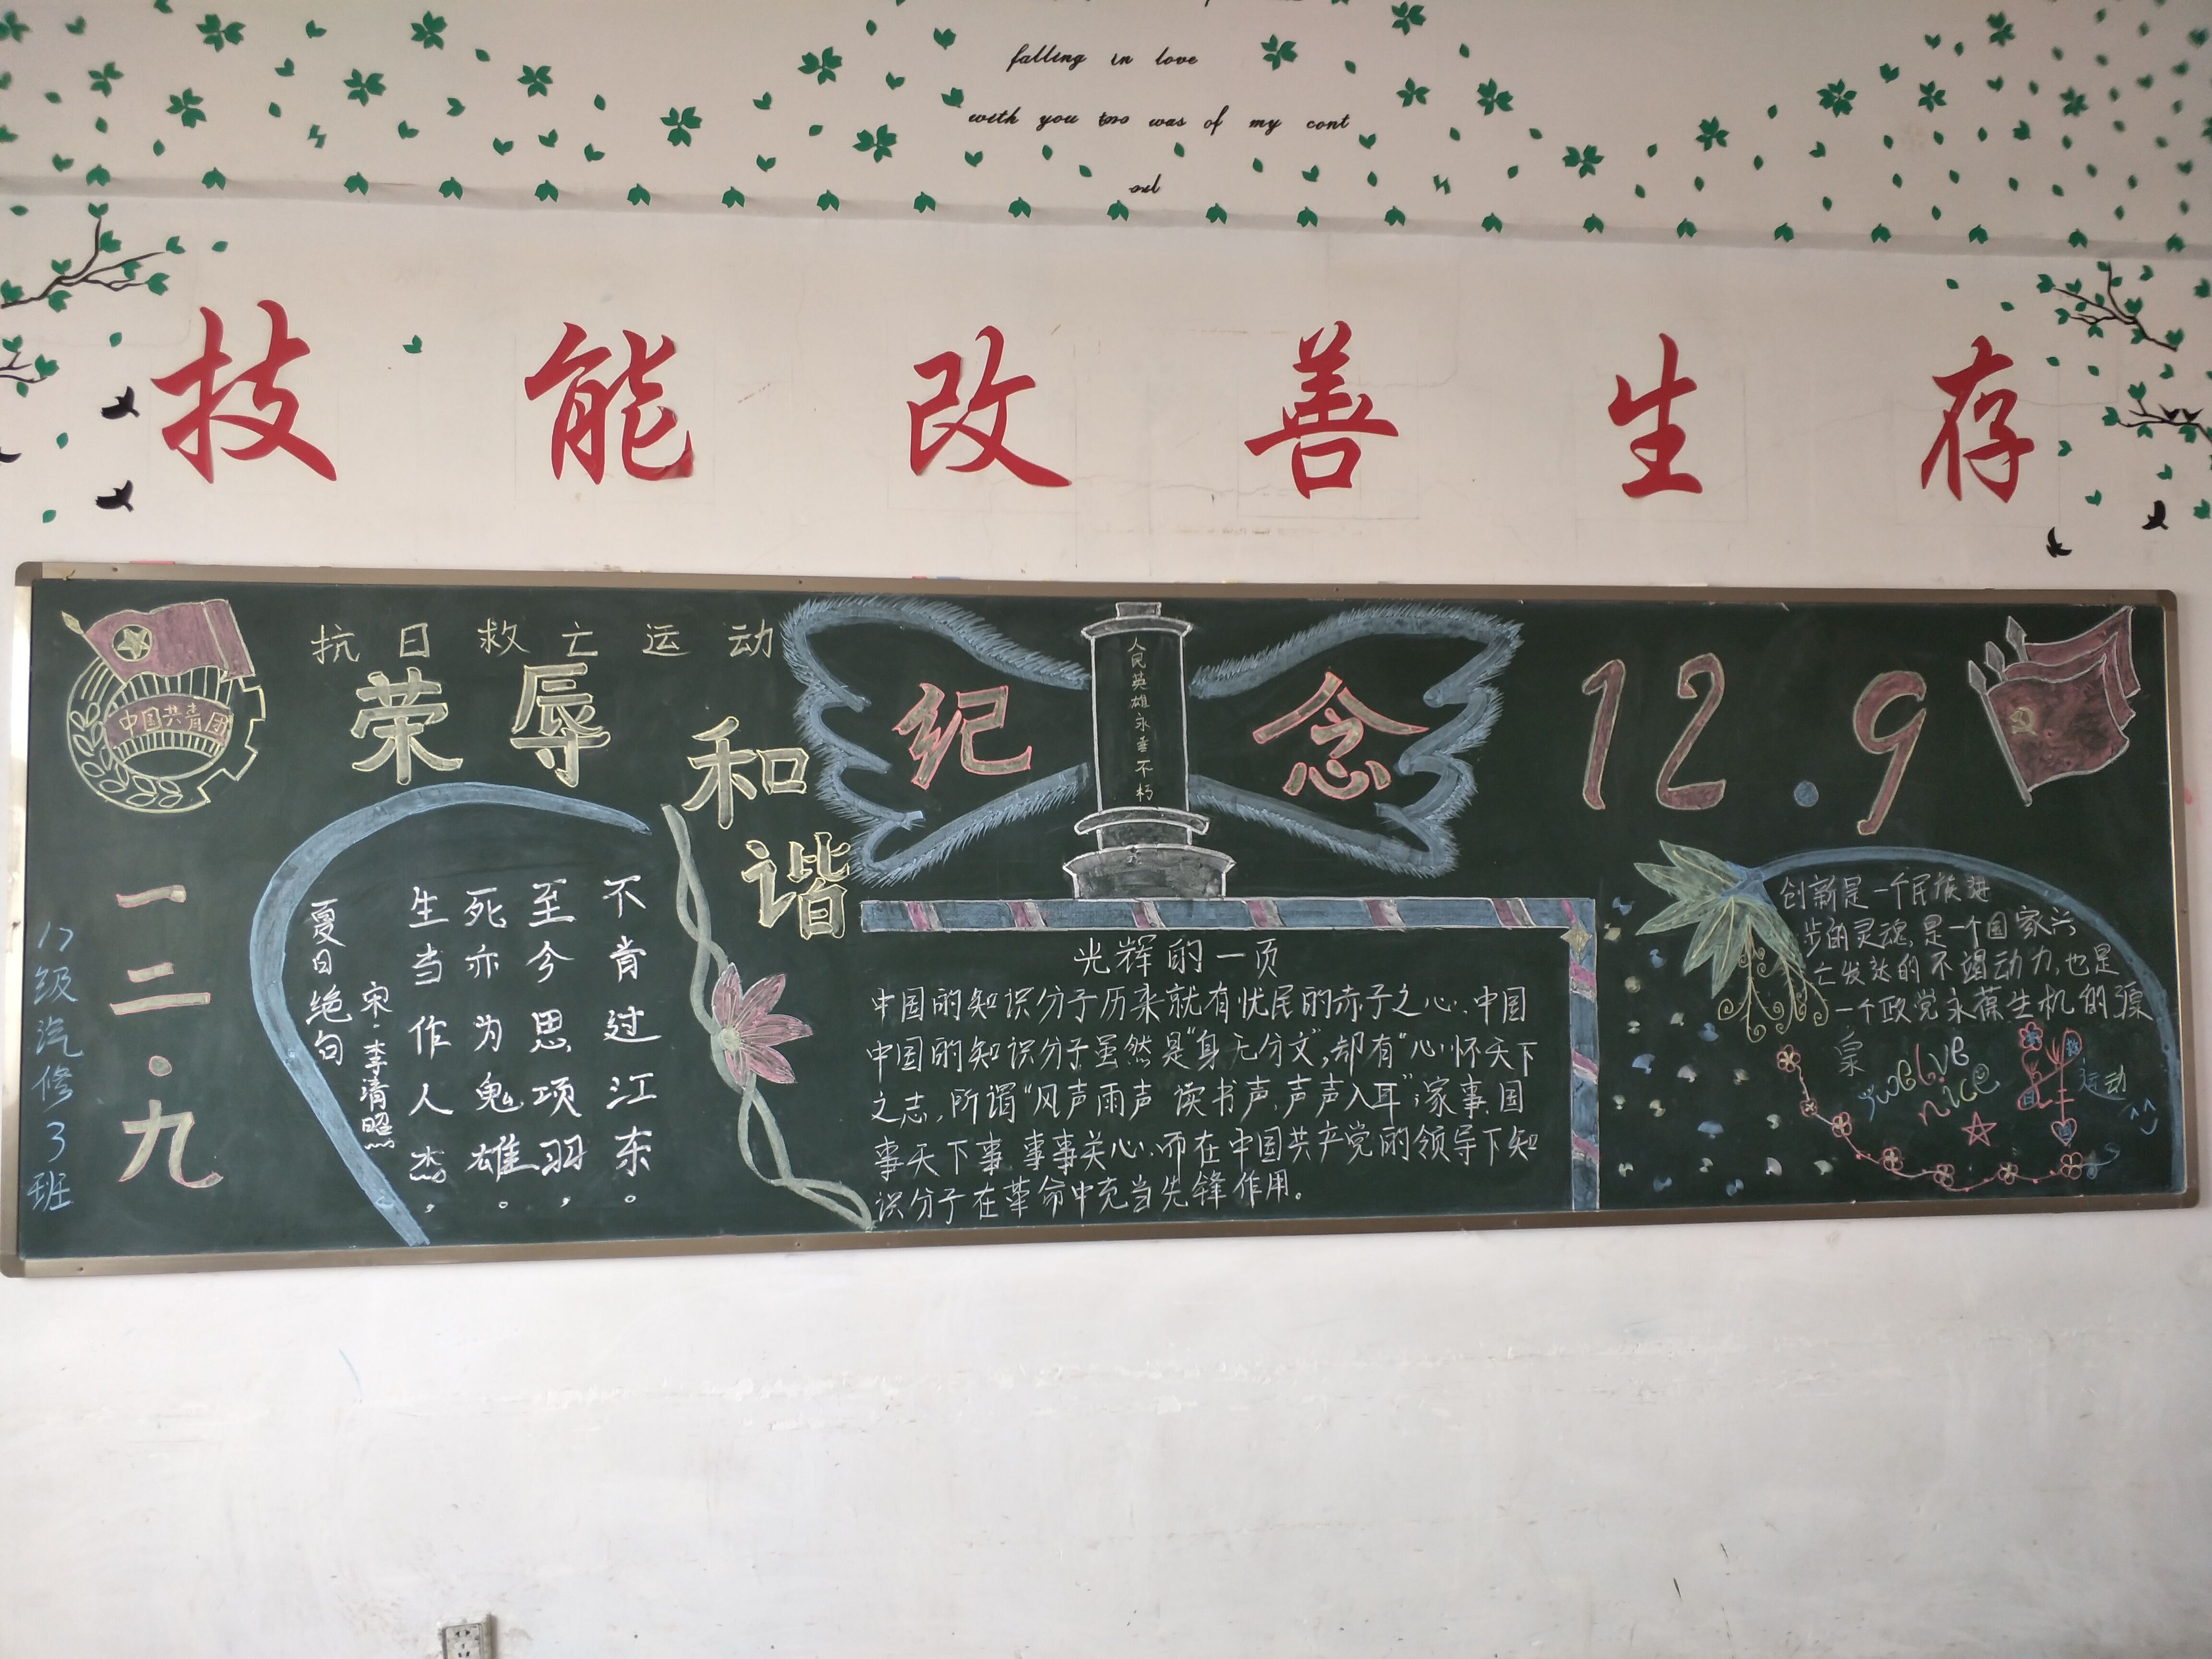 falling in love
with you too was of my cont
owl
技能改善生存
抗日救亡运动
中国共青团
荣辱
和
谐
纪念
人民英雄永垂不朽
12.9
一二·九
17级汽修3班
夏日绝句
宋·李清照
生当作人杰，
死亦为鬼雄。
至今思项羽，
不肯过江东。
光辉的一页
中国的知识分子历来就有忧民的赤子之心.中国
中国的知识分子虽然是“身无分文”,却有“心怀天下
之志,所谓“风声雨声 读书声,声声入耳”;家事国
事天下事 事事关心.而在中国共产党的领导下知
识分子在革命中充当先锋作用。
创新是一个民族进
步的灵魂,是一个国家兴
亡发达的不竭动力,也是
一个政党永葆生机的源
泉
nice
运动